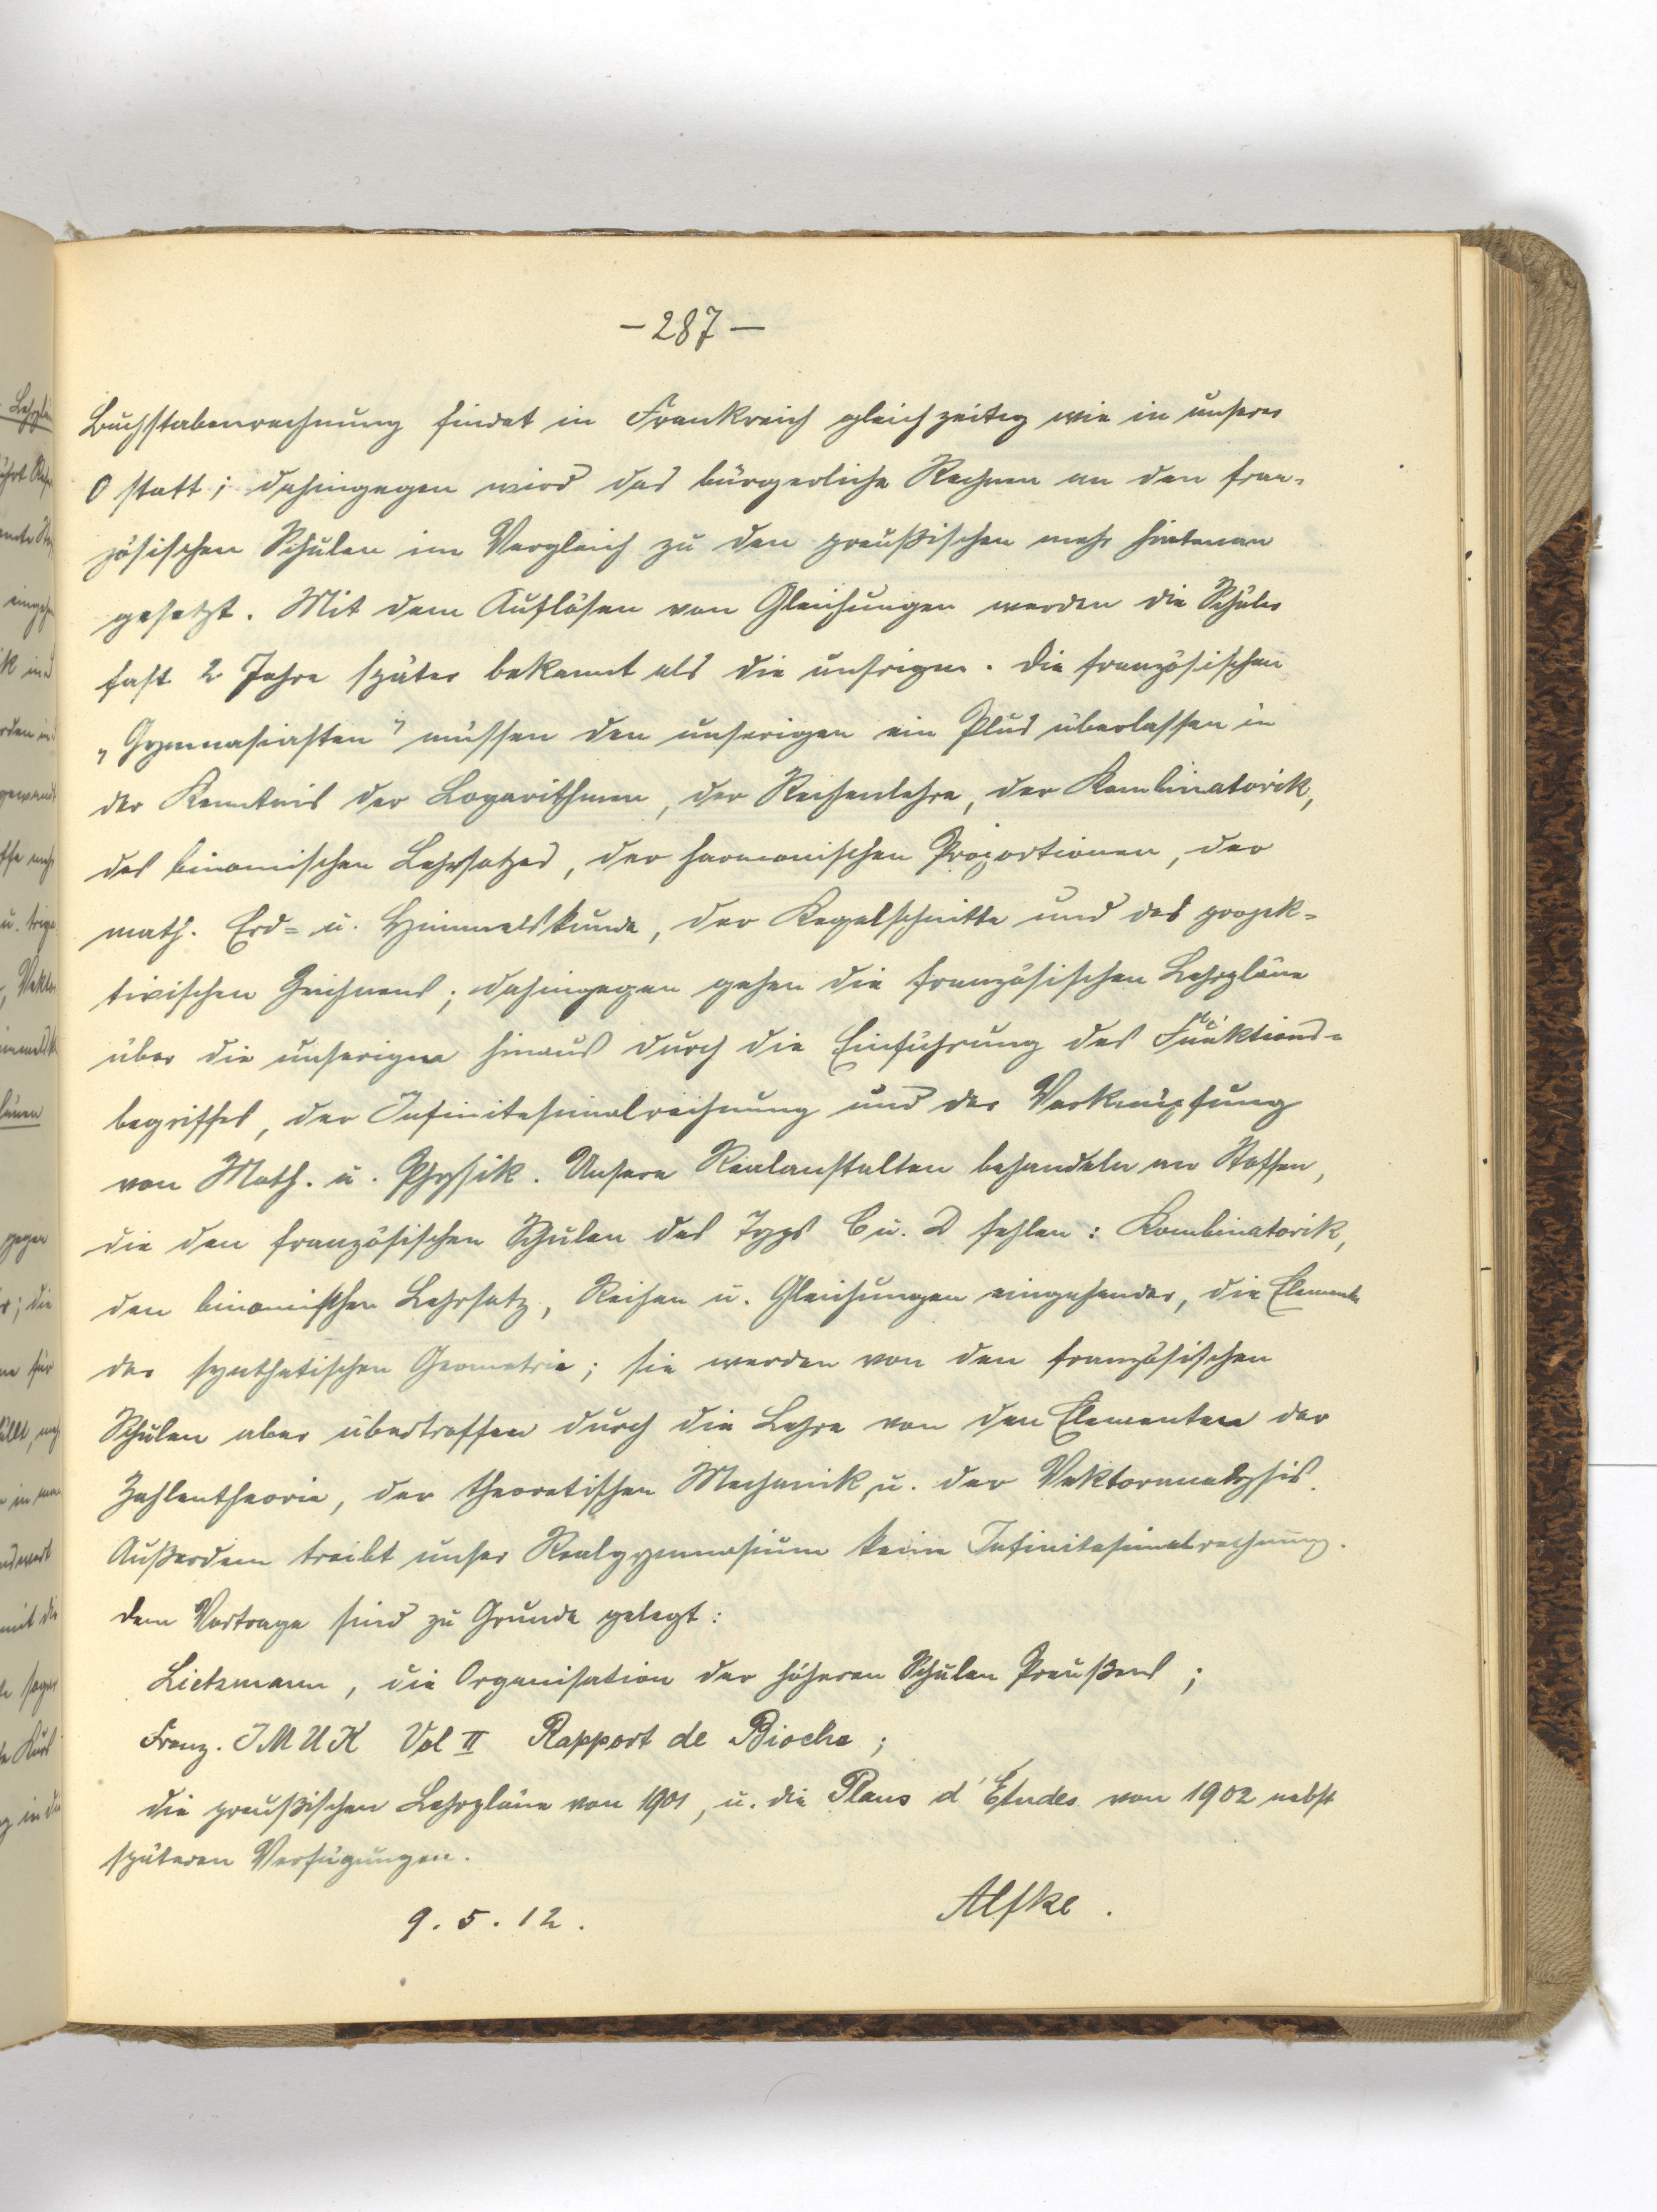 - 287 -
Buchstabenrechnung findet in Frankreich gleichzeitig wie in unserer
O statt; dahingegen wird das bürgerliche Rechnen an den fran-
zösischen Schulen im Vergleich zu den preußischen mehr hintenan
gesetzt. Mit dem Auflösen von Gleichungen werden die Schüler
fast 2 Jahre später bekannt als die unsrigen. Die französischen
„Gymnasiasten" müssen den unserigen ein Plus überlassen in
der Kenntnis der Logarithmen, der Reihenlehre, der Kombinatorik,
des binomischen Lehrsatzes, der harmonischen Proportionen, der
math. Erd- u. Himmelskunde, der Kegelschnitte und des projek-
tivischen Zeichnens; dahingegen gehen die französischen Lehrpläne
über die unserigen hinaus durch die Einführung des Funktions-
begriffes, der Infinitesimalrechnung und der Verknüpfung
von Math. u. Physik. Unsere Realanstalten behandeln an Stoffen,
die den französischen Schulen des Typs C u. D fehlen: Kombinatorik,
den binomischen Lehrsatz, Reihen u. Gleichungen eingehender, die Elemente
der synthetischen Geometrie; sie werden von den französischen
Schulen aber übertroffen durch die Lehre von den Elementen der
Zahlentheorie, der theoretischen Mechanik, u. der Vektoranalysis.
Außerdem treibt unser Realgymnasium keine Infinitesimalrechnung.
Dem Vortrage sind zu Grunde gelegt:
Lietzmann, die Organisation der höheren Schulen Preußens;
Franz. IMUK Vol II Rapport de Bioche;
die preußischen Lehrpläne von 1901, u. die Plans d'Etudes von 1902 nebst
späteren Verfügungen.
9. 5. 12.
Alfke.